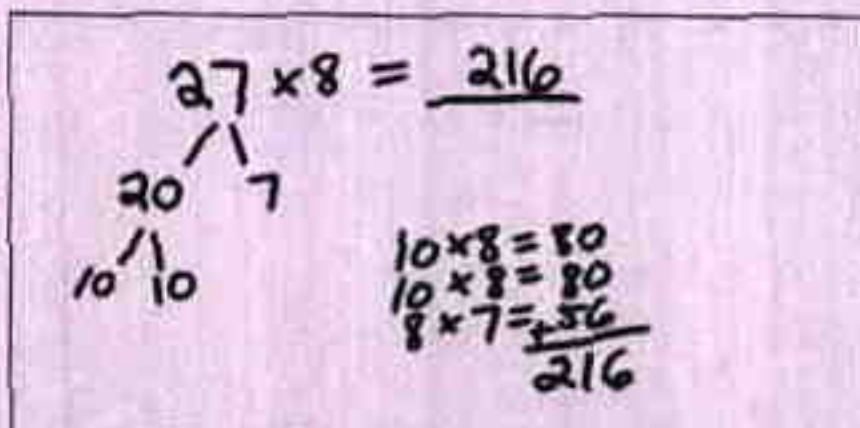 27 x 8 = 216
20 7
10 10
10 x 8 = 80
10 x 8 = 80
8 x 7 = +56
216